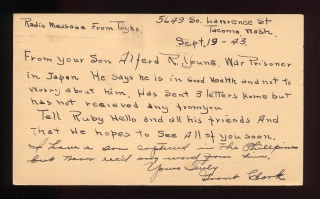 Radio Message From Toyko.
5649 So. Lawrence St
Tacoma Wash.
Sept. 19 - 43.
From your Son Alferd R. Young, War Prisoner
in Japan He Says he is in Good Health and not to
Worry about him. Has Sent 3 letters home but
has not recieved any from you
Tell Ruby Hello and all his friends And
That He hopes to See All of you Soon.
I have a son captured in The Phillipines
but never rec'd any word from him.
Yours Truly
Grant Clark